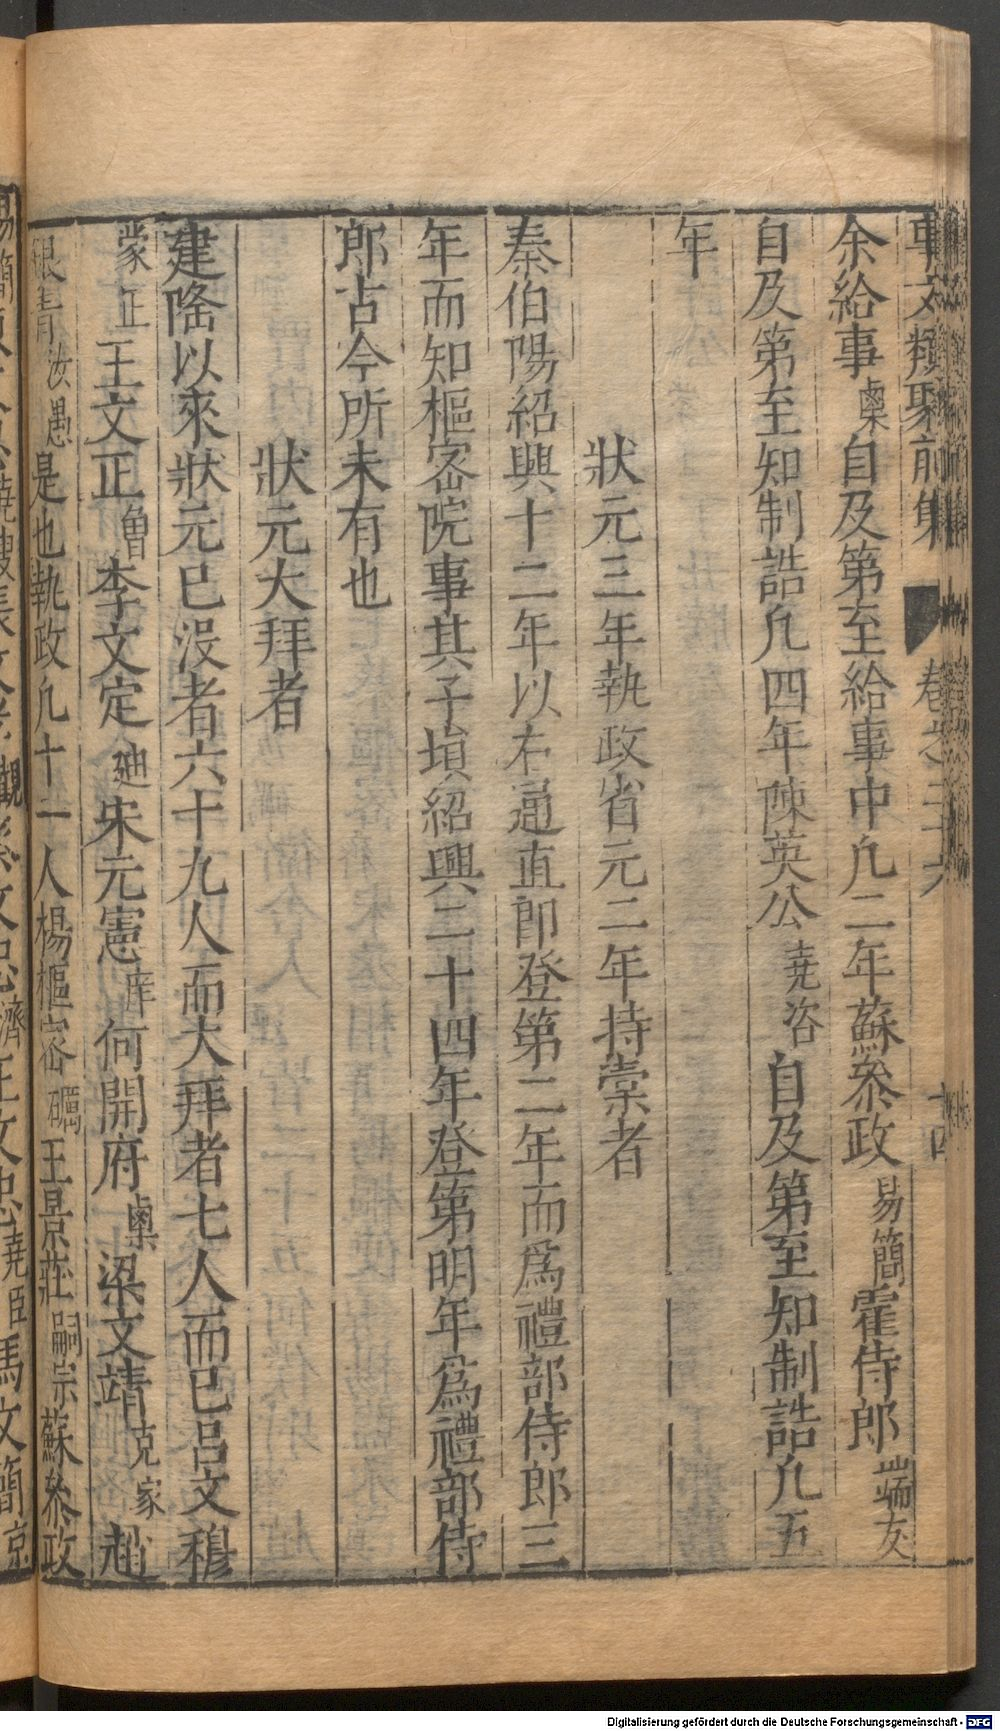 事文類聚前集 卷之二十六 十四
余給事㮚自及第至給事中凢二年蘇叅政易簡霍侍郎端友
自及第至知制誥凢四年陳英公堯咨自及第至知制誥凢五
年
狀元三年執政省元二年持槖者
秦伯陽紹興十二年以右通直郎登第二年而爲禮部侍郎三
年而知樞宻院事其子塤紹興二十四年登第明年爲禮部侍
郎古今所未有也
狀元大拜者
建隆以來狀元已没者六十九人而大拜者七人而已呂文穆
蒙正王文正曾李文定迪宋元憲庠何開府㮚梁文靖克家趙
汝愚是也執政凢十一人楊樞宻礪王景莊嗣宗蘇叅政
Digitalisierung gefördert durch die Deutsche Forschungsgemeinschaft - DFG